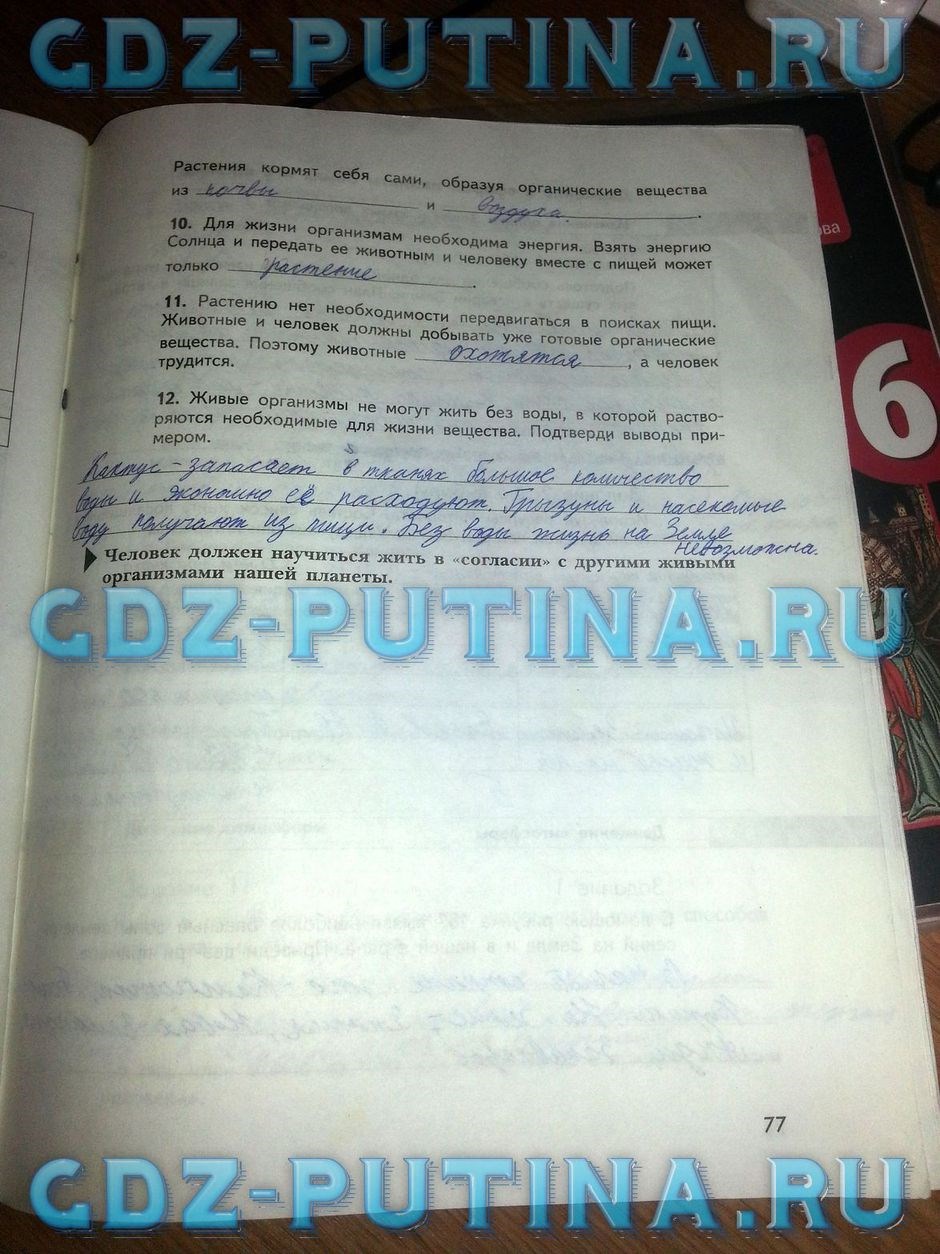 GDZ-PUTINA.RU
Растения кормят себя сами, образуя органические вещества
из почвы и воздуха.
10. Для жизни организмам необходима энергия. Взять энергию
Солнца и передать ее животным и человеку вместе с пищей может
только растение.
11. Растению нет необходимости передвигаться в поисках пищи.
Животные и человек должны добывать уже готовые органические
вещества. Поэтому животные охотятся, а человек
трудится.
12. Живые организмы не могут жить без воды, в которой раство-
ряются необходимые для жизни вещества. Подтверди выводы при-
мером.
Кактус - запасает в тканях большое количество
воды и экономно её расходуют. Грызуны и насекомые
воду получают из пищи. Без воды жизнь на Земле
невозможна.
Человек должен научиться жить в «согласии» с другими живыми
организмами нашей планеты.
GDZ-PUTINA.RU
77
GDZ-PUTINA.RU
ова
6